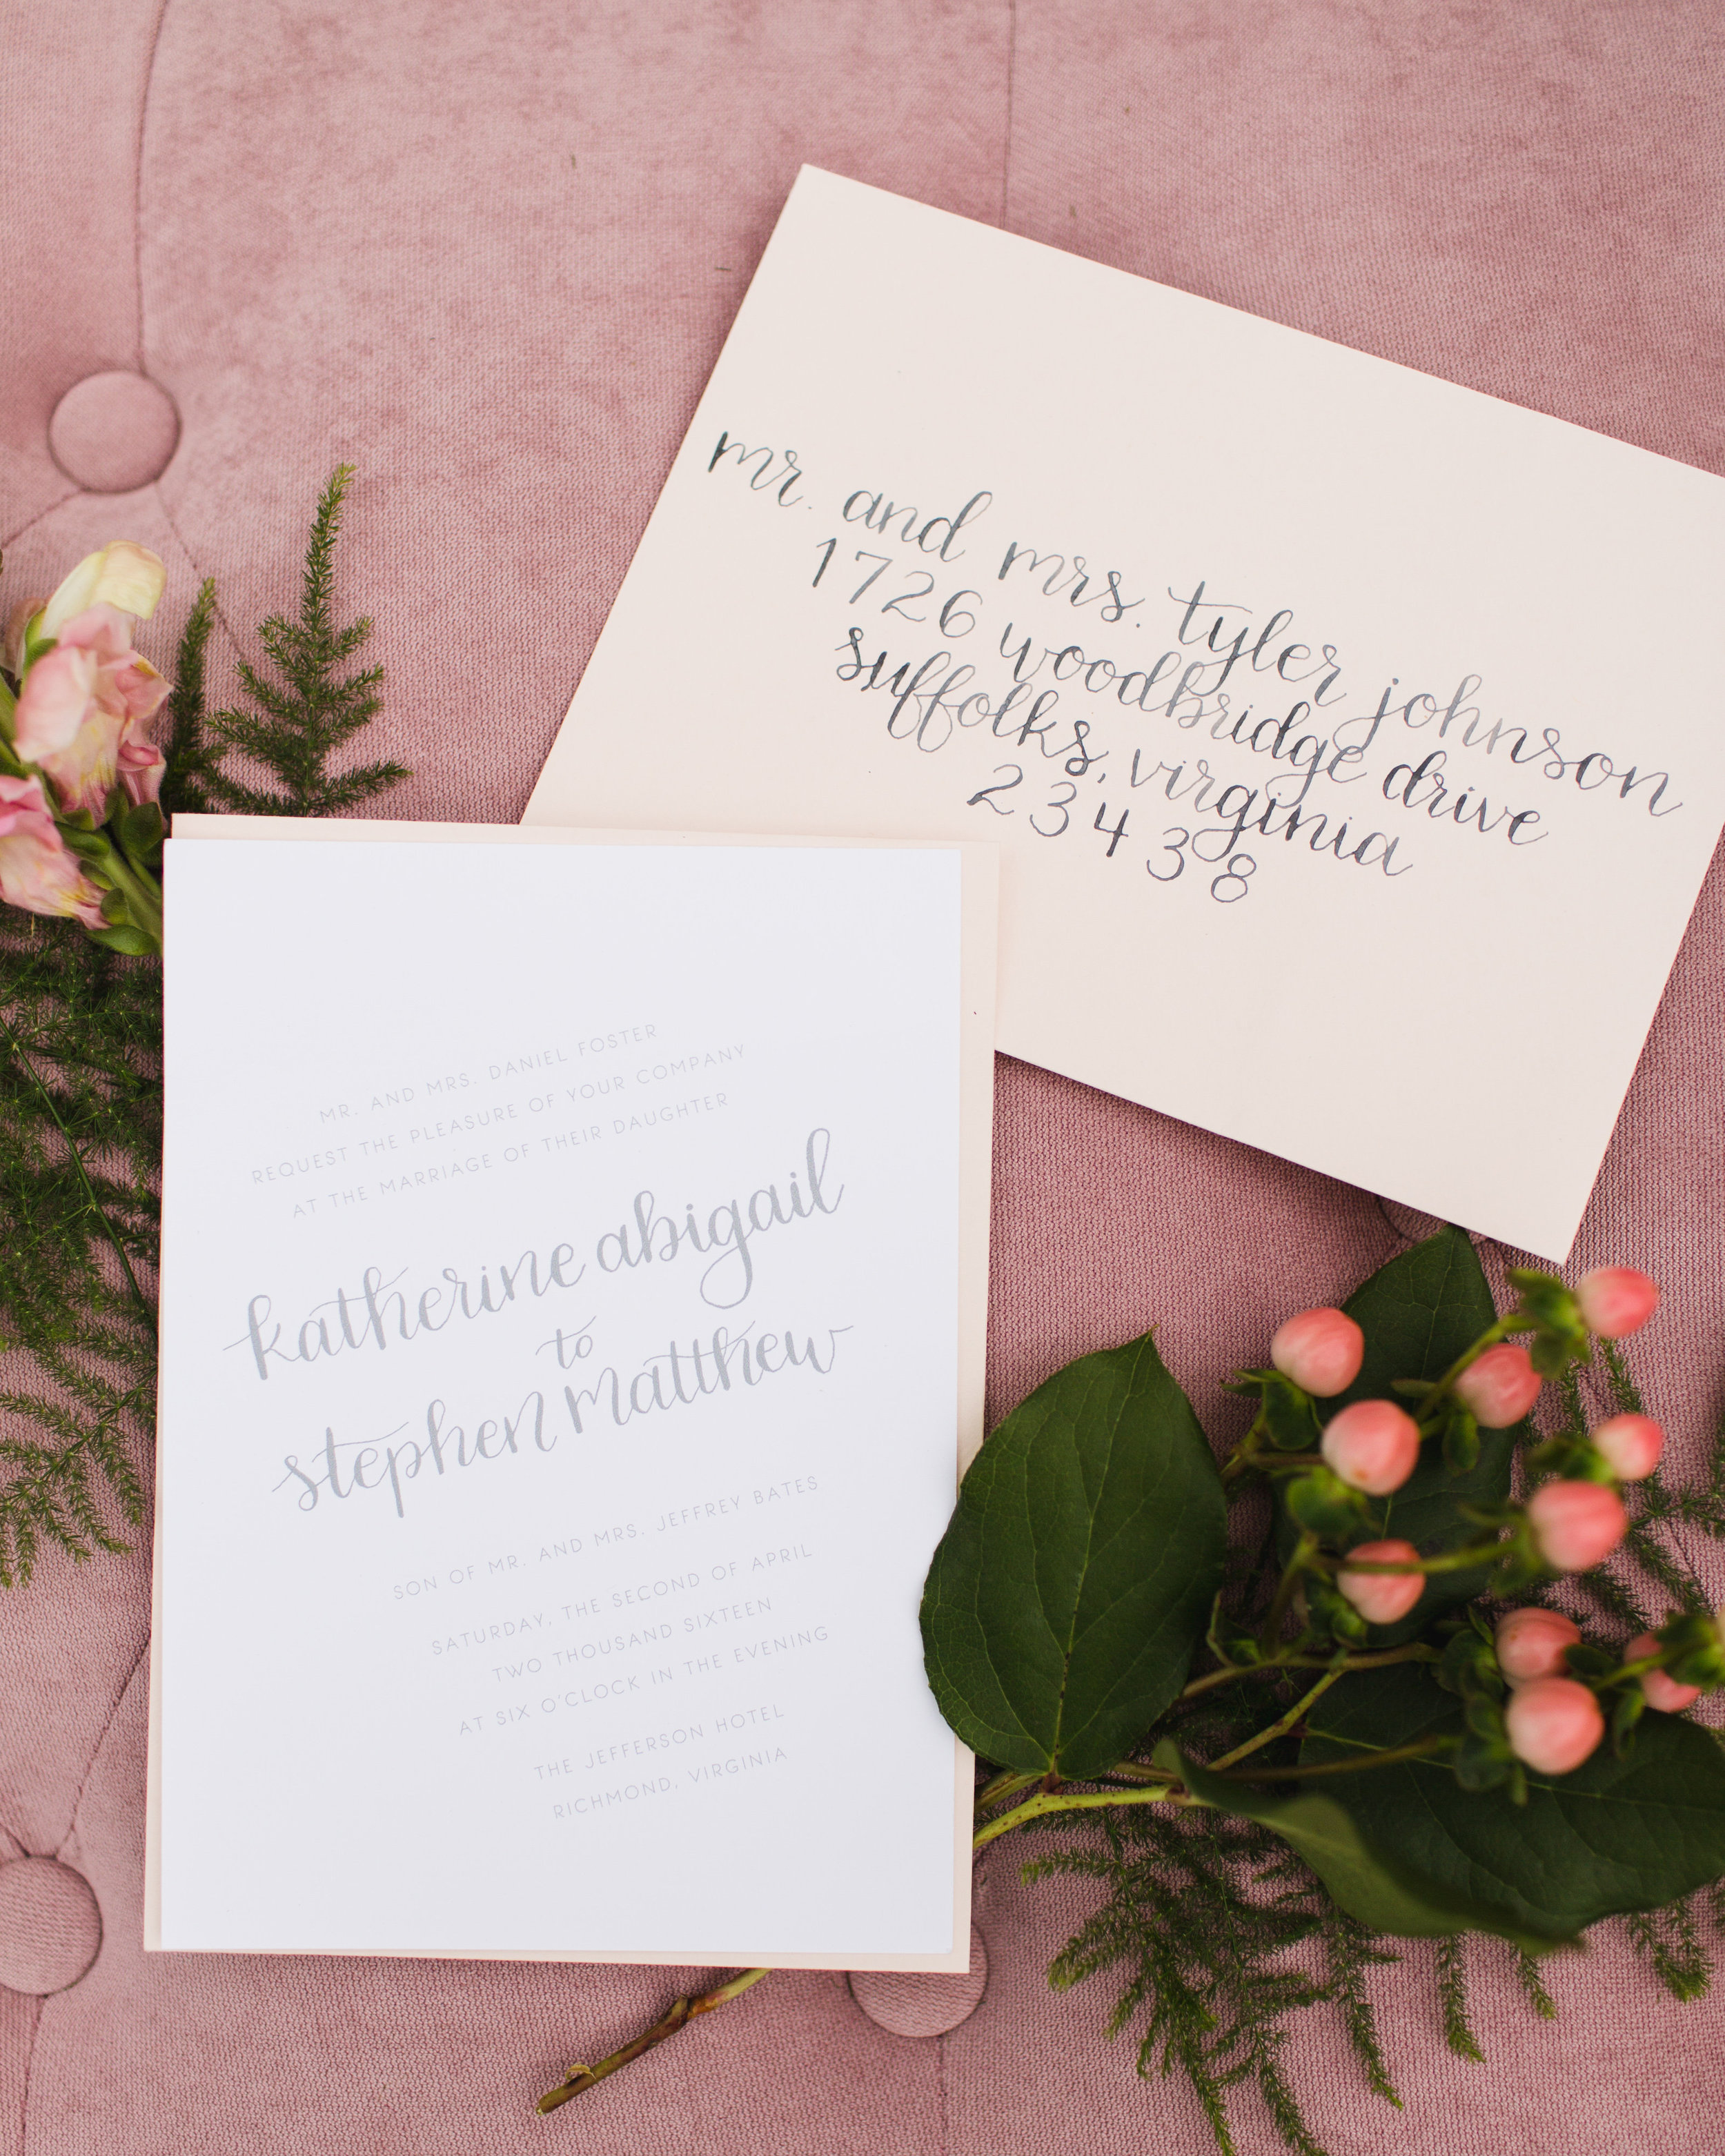 mr. and mrs. tyler johnson
1726 woodbridge drive
suffolks, virginia
23438
MR. AND MRS. DANIEL FOSTER
REQUEST THE PLEASURE OF YOUR COMPANY
AT THE MARRIAGE OF THEIR DAUGHTER
katherine abigail
to
stephen matthew
SON OF MR. AND MRS. JEFFREY BATES
SATURDAY, THE SECOND OF APRIL
TWO THOUSAND SIXTEEN
AT SIX O'CLOCK IN THE EVENING
THE JEFFERSON HOTEL
RICHMOND, VIRGINIA